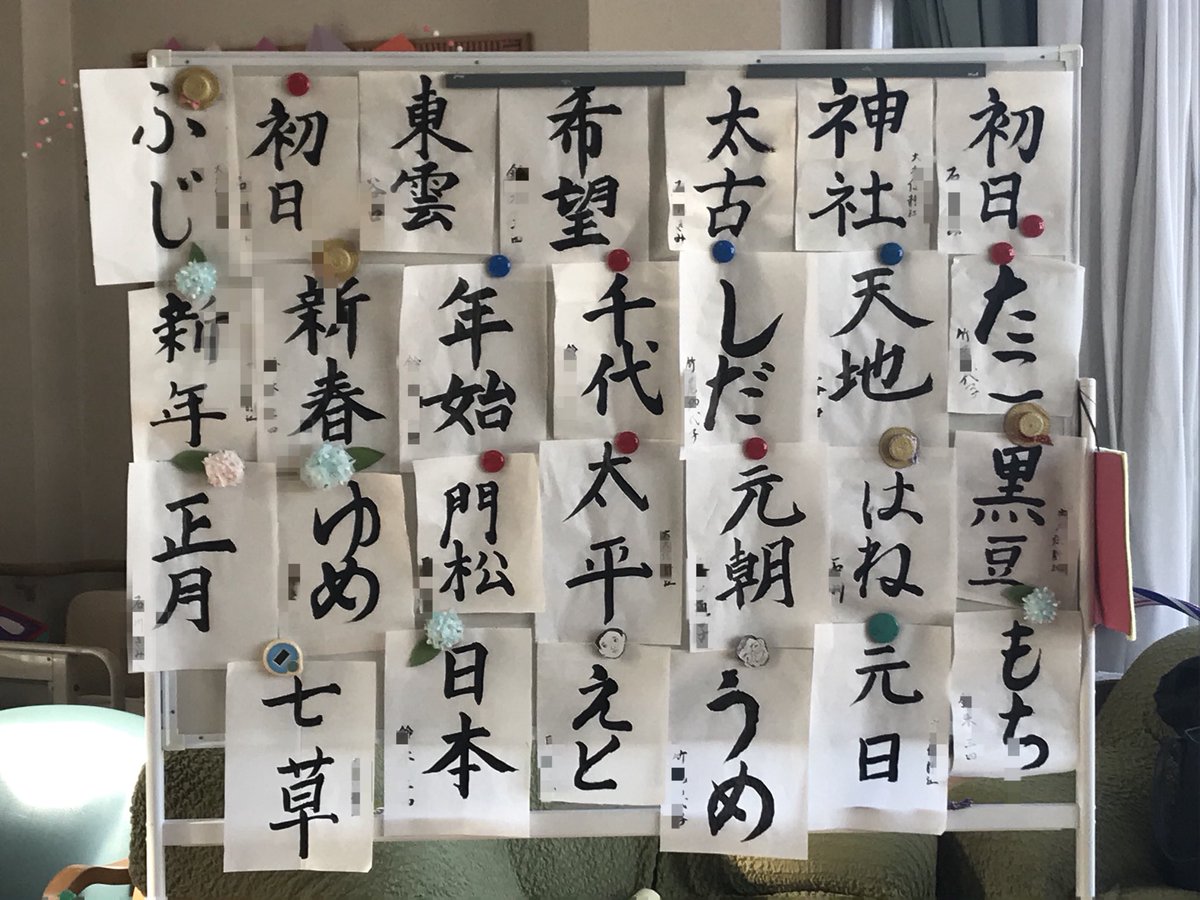 初日
神社
太古
希望
東雲
初日
ふじ
たこ
天地
しだ
千代
年始
新春
新年
黒豆
はね
元朝
太平
門松
ゆめ
正月
もち
元日
うめ
えと
日本
七草